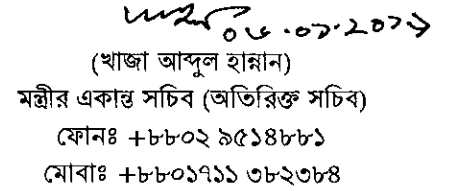 ০৬.০১.২০১১
(খাজা আব্দুল হান্নান)
মন্ত্রীর একান্ত সচিব (অতিরিক্ত সচিব)
ফোনঃ +৮৮০২ ৯৫১৪৮৮১
মোবাঃ +৮৮০১৭১১ ৩৮২৩৮৪